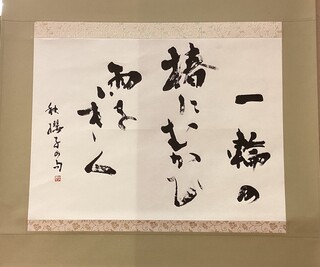 一輪の
椿にむかひ
雨をきく
秋櫻子の句